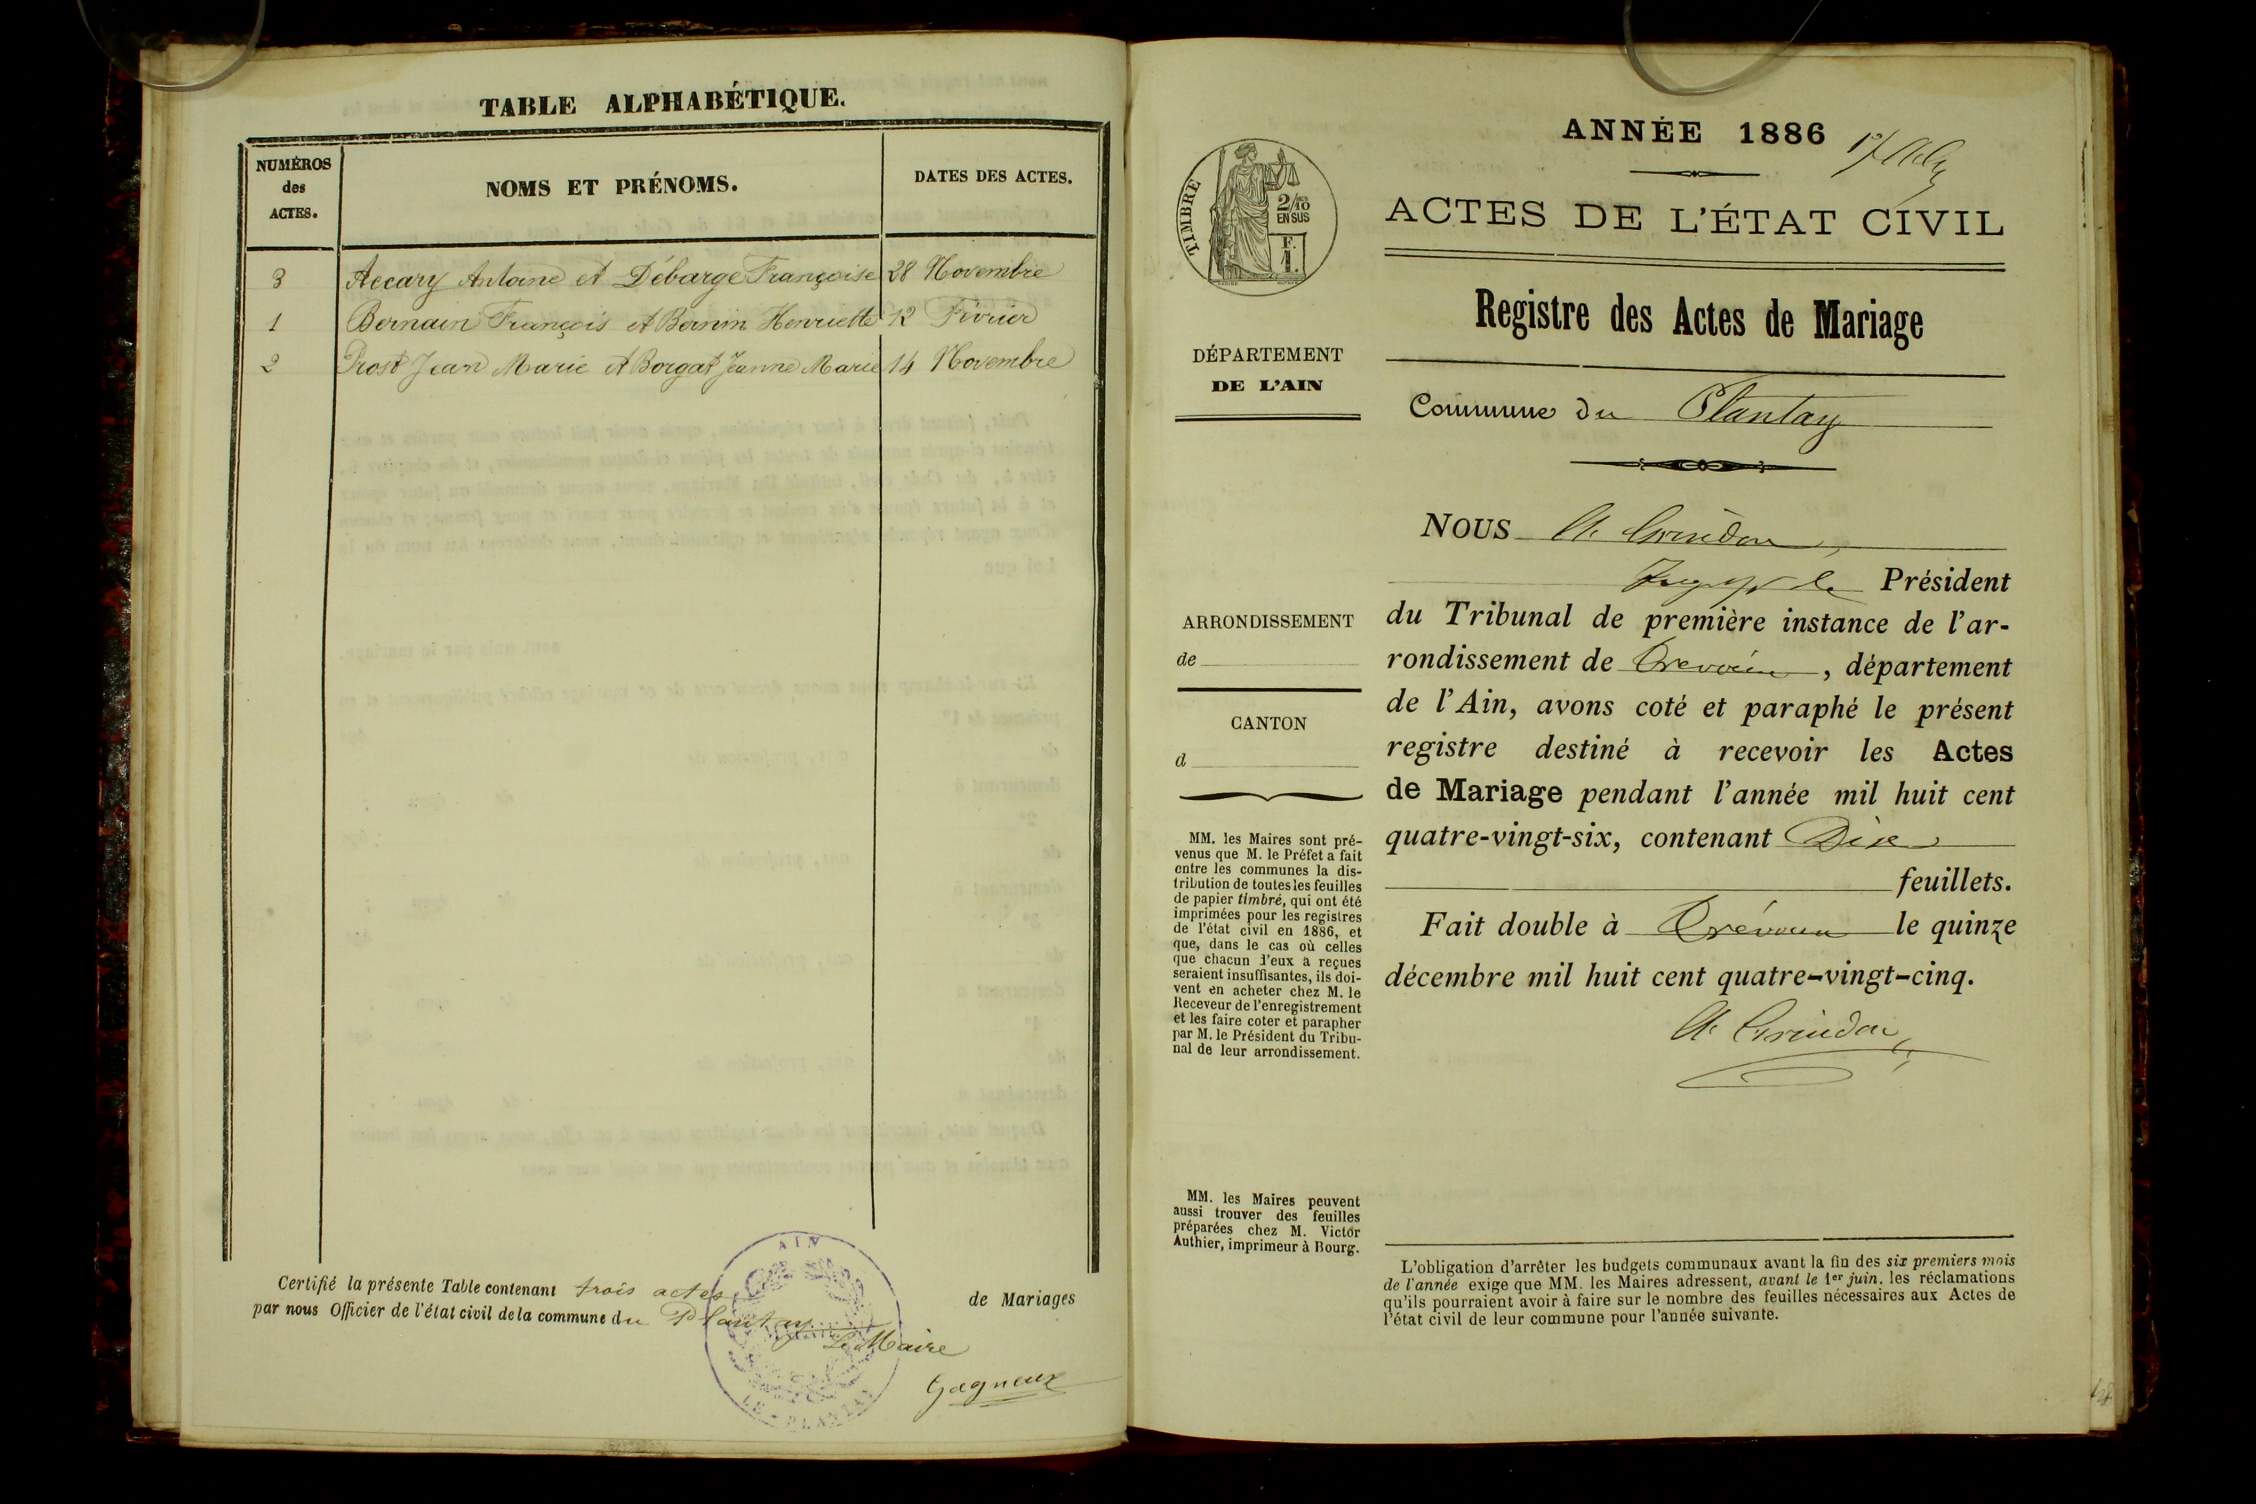 TABLE ALPHABÉTIQUE.
NUMÉROS
des
ACTES.
NOMS ET PRÉNOMS.
DATES DES ACTES.
3 Accary Antoine et Débarge Françoise 28 Novembre
1 Bernain François et Bernin Henriette 12 Février
2 Prost Jean Marie et Borgat Jeanne Marie 14 Novembre
Certifié la présente Table contenant trois actes de Mariages
par nous Officier de l'état civil de la commune du Plantay
Le Maire
Gagneux
AIN
LE PLANTAY
ANNÉE 1886
ACTES DE L'ÉTAT CIVIL
TIMBRE
2/10
EN SUS
F.
1.
Registre des Actes de Mariage
DÉPARTEMENT
DE L'AIN
Commune du Plantay
NOUS A. Grindon,
Président
du Tribunal de première instance de l'ar-
rondissement de Trévoux, département
de l'Ain, avons coté et paraphé le présent
registre destiné à recevoir les Actes
de Mariage pendant l'année mil huit cent
quatre-vingt-six, contenant Dix
feuillets.
Fait double à Trévoux le quinze
décembre mil huit cent quatre-vingt-cinq.
A. Grindon
ARRONDISSEMENT
de
CANTON
d
MM. les Maires sont pré-
venus que M. le Préfet a fait
entre les communes la dis-
tribution de toutes les feuilles
de papier timbré, qui ont été
imprimées pour les registres
de l'état civil en 1886, et
que, dans le cas où celles
que chacun d'eux a reçues
seraient insuffisantes, ils doi-
vent en acheter chez M. le
Receveur de l'enregistrement
et les faire coter et parapher
par M. le Président du Tribu-
nal de leur arrondissement.
MM. les Maires peuvent
aussi trouver des feuilles
préparées chez M. Victor
Authier, imprimeur à Bourg.
L'obligation d'arrêter les budgets communaux avant la fin des six premiers mois
de l'année exige que MM. les Maires adressent, avant le 1er juin, les réclamations
qu'ils pourraient avoir à faire sur le nombre des feuilles nécessaires aux Actes de
l'état civil de leur commune pour l'année suivante.